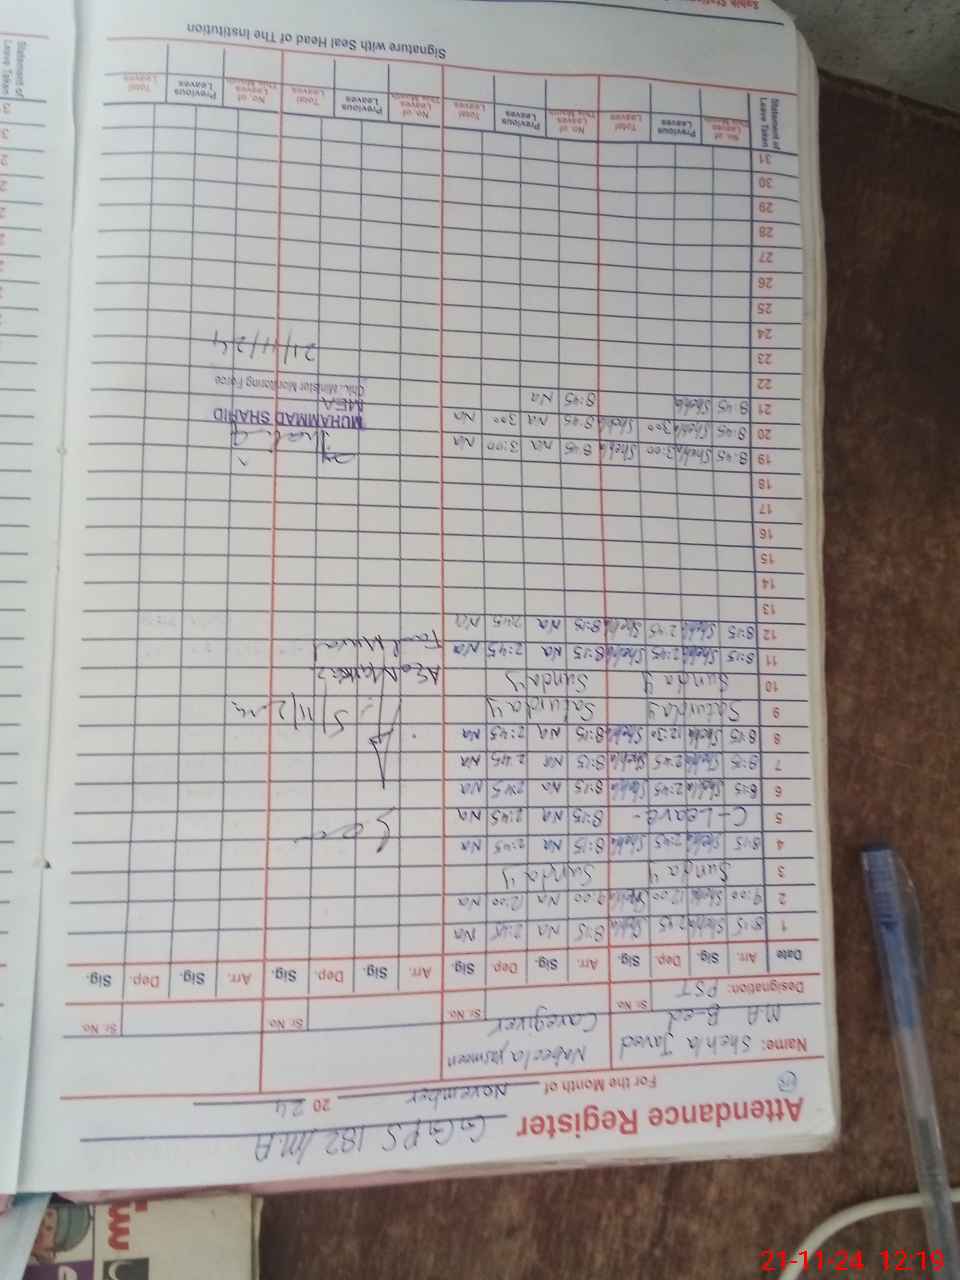 Attendance Register G.G.P.S 182/M.A
For the Month of November 2024
Name: Shehla Javed Nabeela yasmeen
M.A B-ed Caregiver
Designation: PST Sr. No. Sr. No. Sr. No. Sr. No.
Date Arr. Sig. Dep. Sig. Arr. Sig. Dep Sig. Arr. Sig. Dep. Sig. Arr. Sig. Dep. Sig.
1 8:15 Shehla 2:45 Shehla 8:15 Na 2:45 Na
2 9:00 Shehla 12:00 Shehla 9:00 Na 12:00 Na
3 Sunday Sunday
4 8:15 Shehla 2:45 Shehla 8:15 Na 2:45 Na
5 C-Leave- 8:15 Na 2:45 Na
6 8:15 Shehla 2:45 Shehla 8:15 Na 2:45 Na
7 8:15 Shehla 2:45 Shehla 8:15 Na 2:45 Na
8 8:15 Shehla 12:30 Shehla 8:15 Na 2:45 Na
9 Saturday Saturday
10 Sunday Sunday
11 8:15 Shehla 2:45 Shehla 8:15 Na 2:45 Na
12 8:15 Shehla 2:45 Shehla 8:15 Na 2:45 Na
13
14
15
16
17
18
19 8:45 Shehla 3:00 Shehla 8:45 Na 3:00 Na
20 8:45 Shehla 3:00 Shehla 8:45 Na 3:00 Na
21 8:45 Shehla 8:45 Na
MUHAMMAD SHAHID
MEA
Chief Minister Monitoring Force
21/11/24
22
23
24
25
26
27
28
29
30
31
Statement of Leave Taken No. of Leaves This Month Previous Leaves Total Leaves No. of Leaves This Month Previous Leaves Total Leaves No. of Leaves This Month Previous Leaves Total Leaves No. of Leaves This Month Previous Leaves Total Leaves
Signature with Seal Head of The Institution
Statement of Leave Taken
21-11-24 12:19